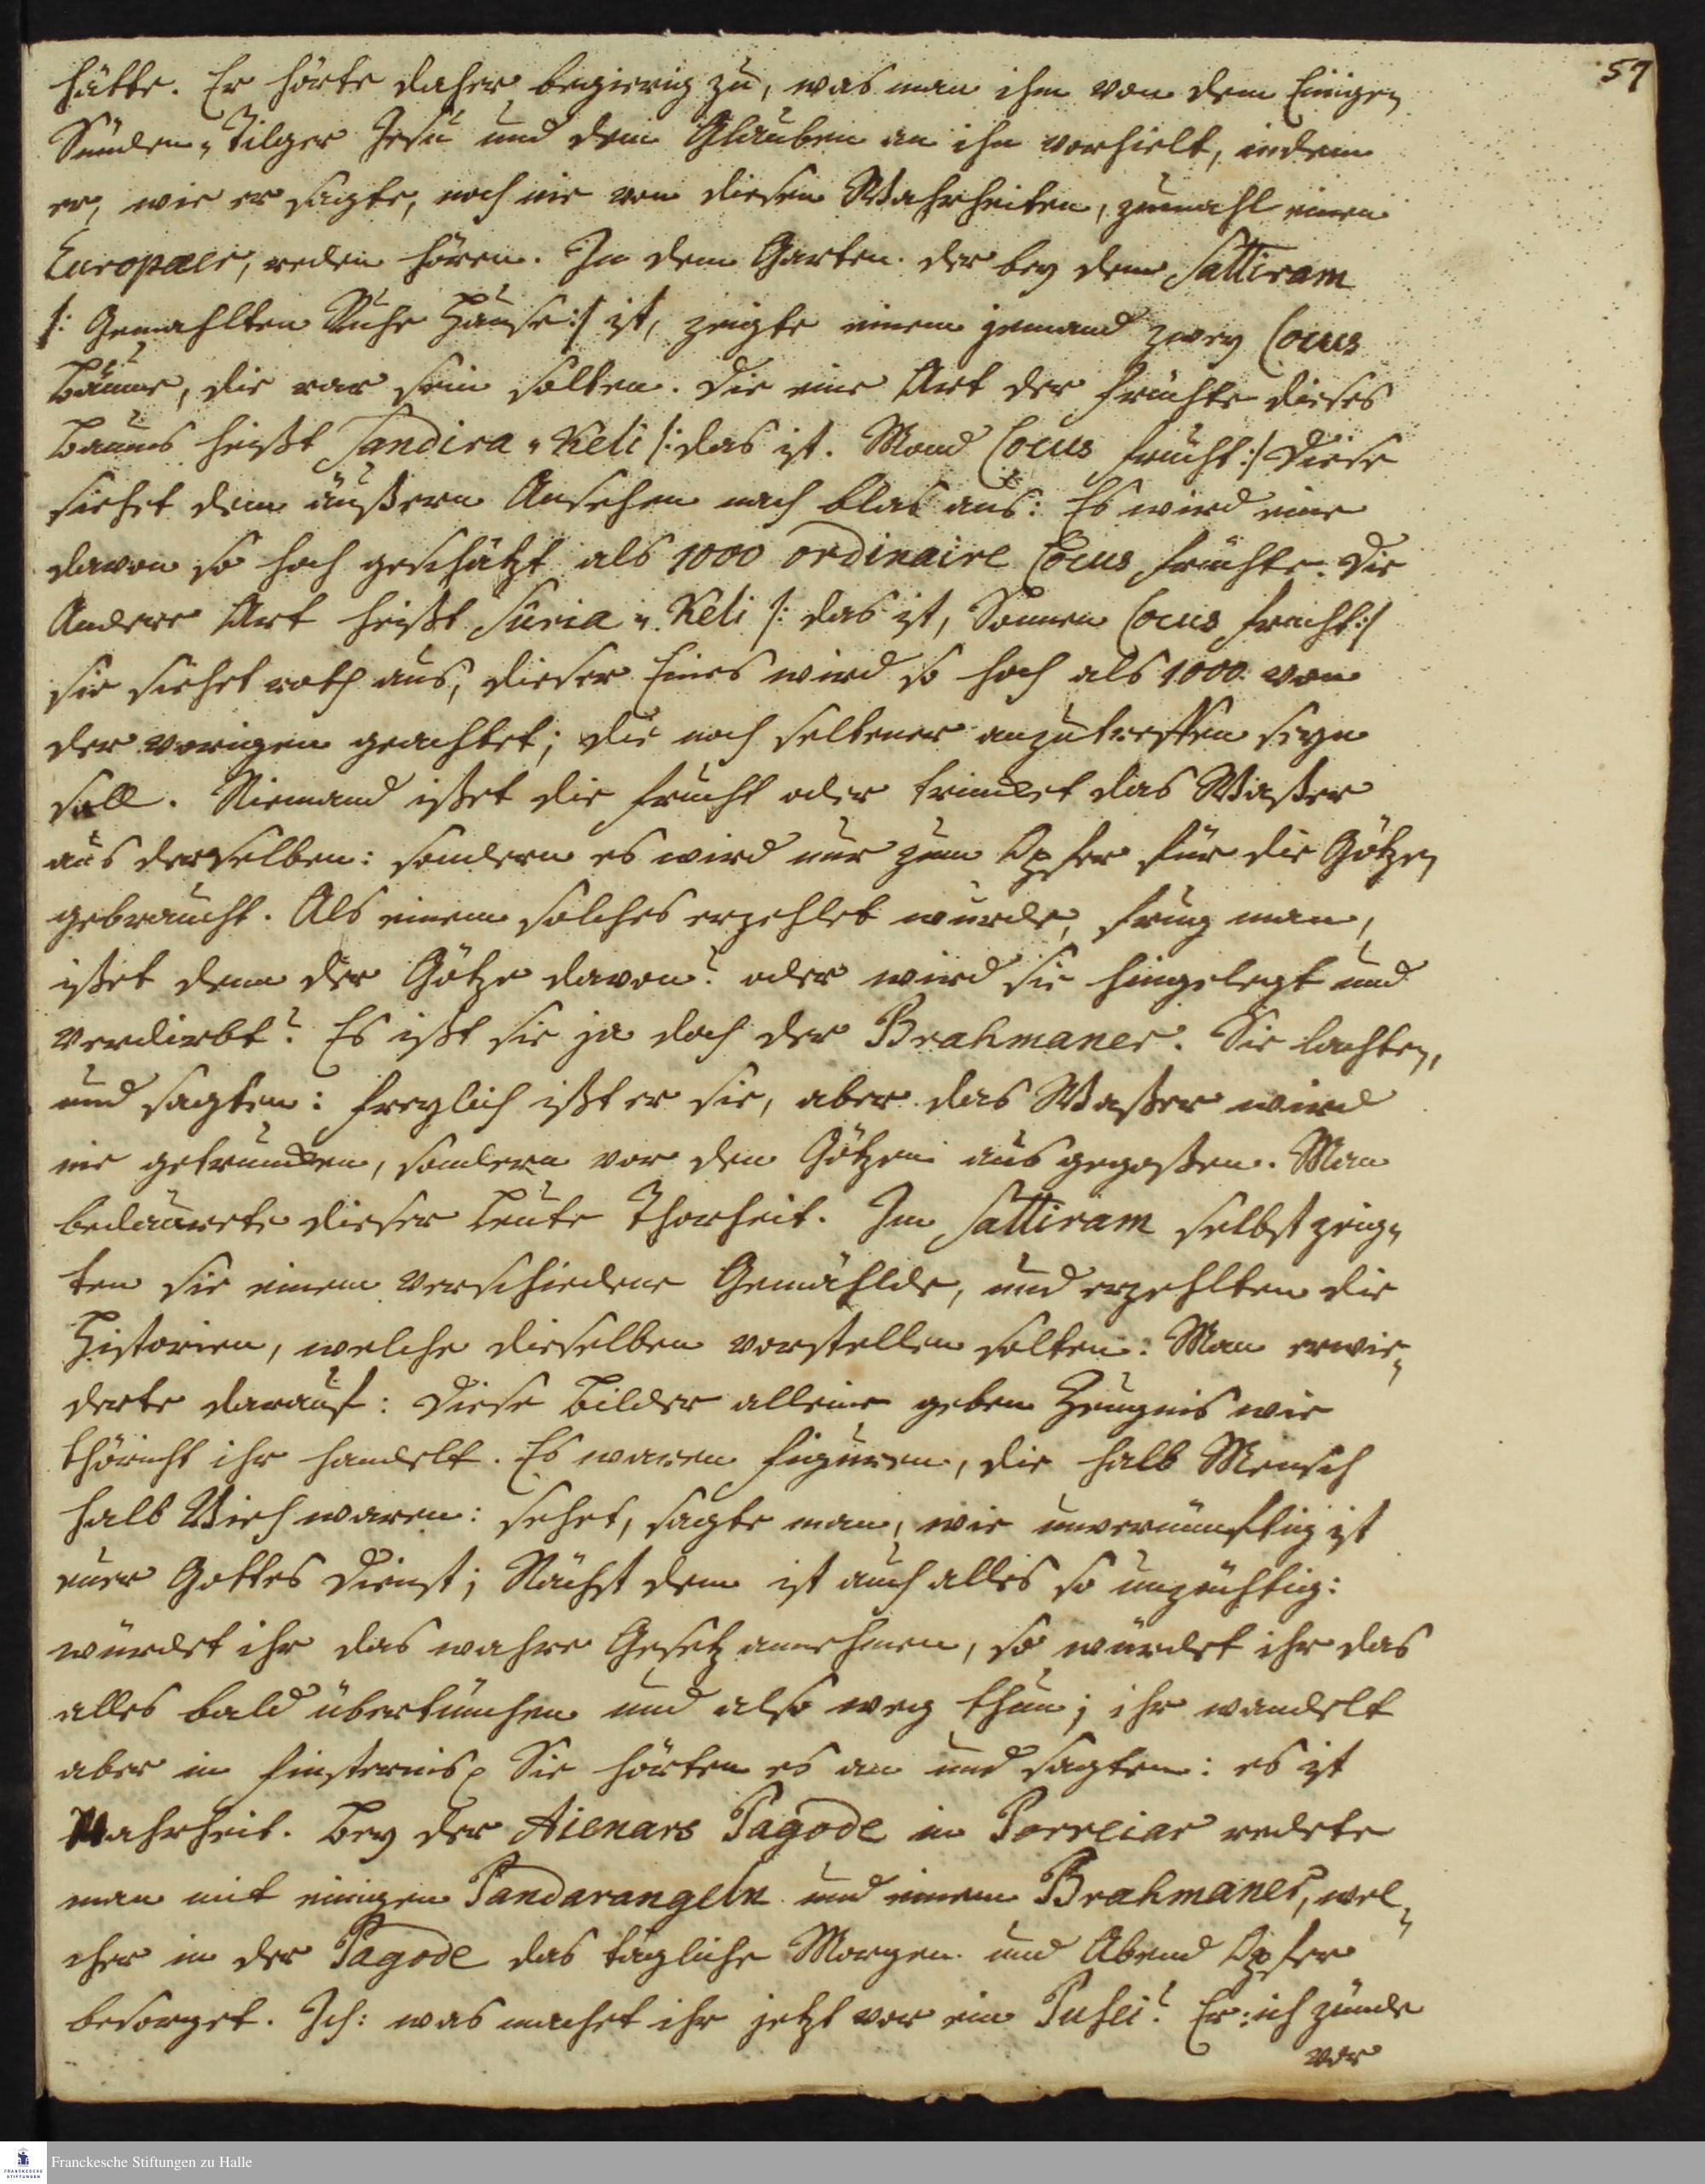 57
hätte. Er hörte daher begierig zu, was man ihm von dem Einigen
Sünden-Tilger Jesu und dem Glauben an ihn vorhielt, indem
er, wie er sagte, noch nie von diesen Wahrheiten, zumahl einen
Europaer, reden hören. In dem Garten der bey dem Sattiram
/: Gemahlten Ruhe Hause :/ ist, zeigte einem jemand zwey Cocus
Bäume, die rar sein solten. Die eine Art der Früchte dieses
Baums heißt Sandira-Keli /: das ist. Mond Cocus Frucht :/ Diese
siehet dem äußern Ansehen nach blas aus: Es wird eine
davon so hoch geschätzt als 1000 ordinaire Cocus Früchte. Die
Andere Art heißt Suria-Keli /: das ist, Sonnen Cocus Frucht :/
sie siehet roth aus, dieser Eines wird so hoch als 1000. von
der vorigen geachtet; die noch seltener anzutreffen seyn
soll. Niemand ißet die Frucht oder trincket das Waßer
aus derselben: sondern es wird nur zum Opfer für die Götzen
gebraucht. Als einem solches erzehlet wurde, frug man,
ißet denn der Götze davon? oder wird sie hingelegt und
verdirbt? Es ißt sie ja doch der Brahmaner. Sie lachten,
und sagten: freylich ißt er sie, aber das Waßer wird
nie getruncken, sondern vor den Götzen ausgegoßen. Man
bedaurete dieser Leute Thorheit. Im Sattiram selbst zeig-
ten sie einem verschiedene Gemählde, und erzehlten die
Historien, welche dieselben vorstellen solten: Man erwie-
derte darauf: Diese Bilder alleine geben Zeugnis wie
thöricht ihr handelt. Es waren Figuren, die halb Mensch
halb Vieh waren: sehet, sagte man, wie unvernünftig ist
euer Gottes Dienst; Nächst dem ist auch alles so unzüchtig:
würdet ihr das wahre Gesetz annehmen, so würdet ihr das
alles bald übertünchen und also weg thun; ihr wandelt
aber in Finsternis. Sie hörten es an und sagten: es ist
Wahrheit. Bey der Aienars Pagode in Porreiar redete
man mit einigen Pandarangeln und einem Brahmaner, wel-
cher in der Pagode das tägliche Morgen und Abend Opfer
besorget. Ich: was machet ihr jetzt vor ein Puhei? Er: ich zünde
vor
Franckesche Stiftungen zu Halle